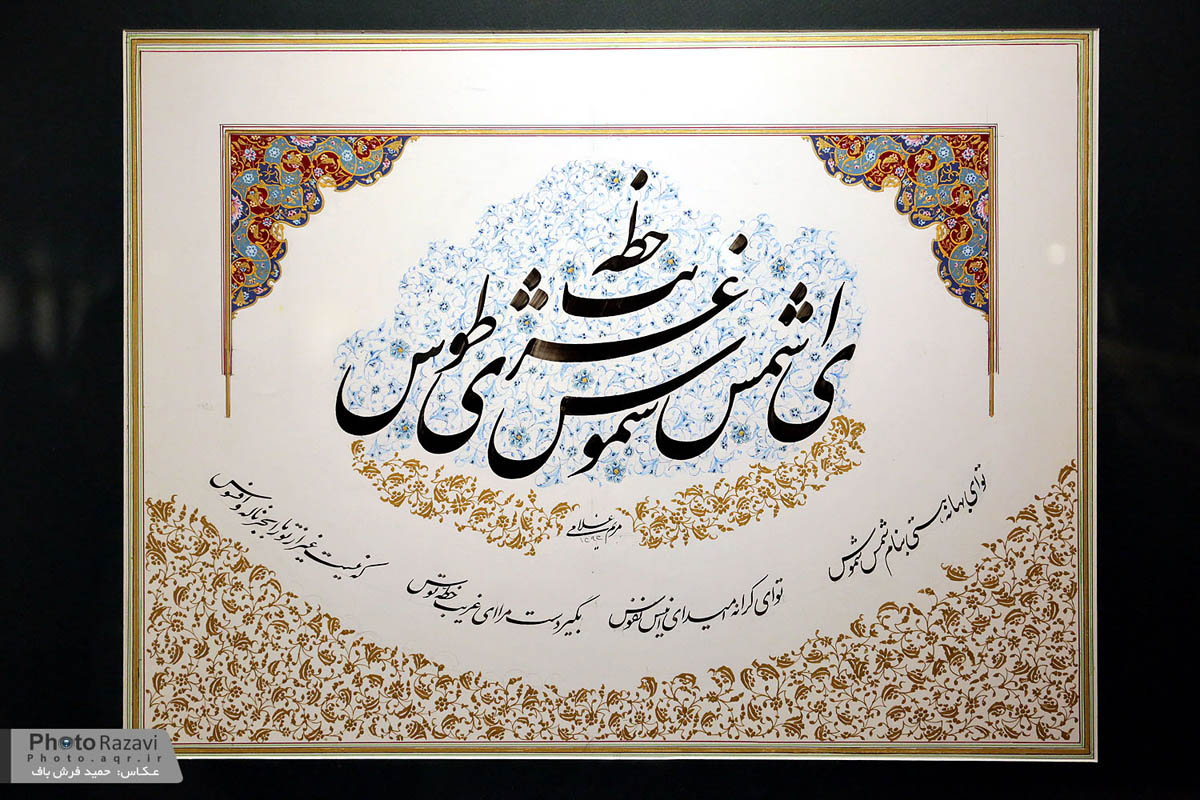 ای شمس شموس
غریب خطه
ی طوس
مریم غلامی
۱۳۹۲
تو ای بهانه هستی بنام شمس شموس
تو ای کرانه امید ای انیس نفوس
بگیر دست مرا ای غریب خطه توس
که نیست غیر از تو یار بجز ناله و افسوس
Photo Razavi
Photo.aqr.ir
عکاس: حمید فرش باف